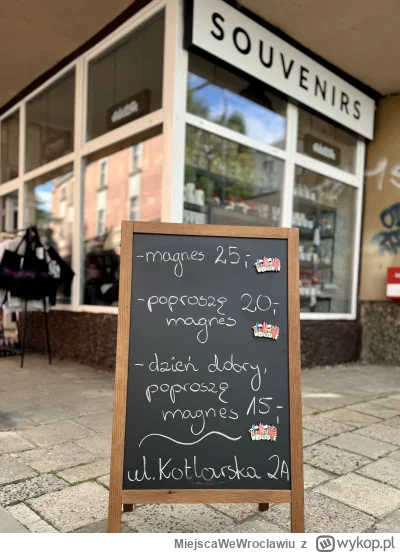 SOUVENIRS
-magnes 25,-
-poproszę 20,-
magnes
-dzień dobry,
poproszę
magnes 15,-
ul. Kotlarska 2A
MiejscaWeWroclawiu z wykop.pl